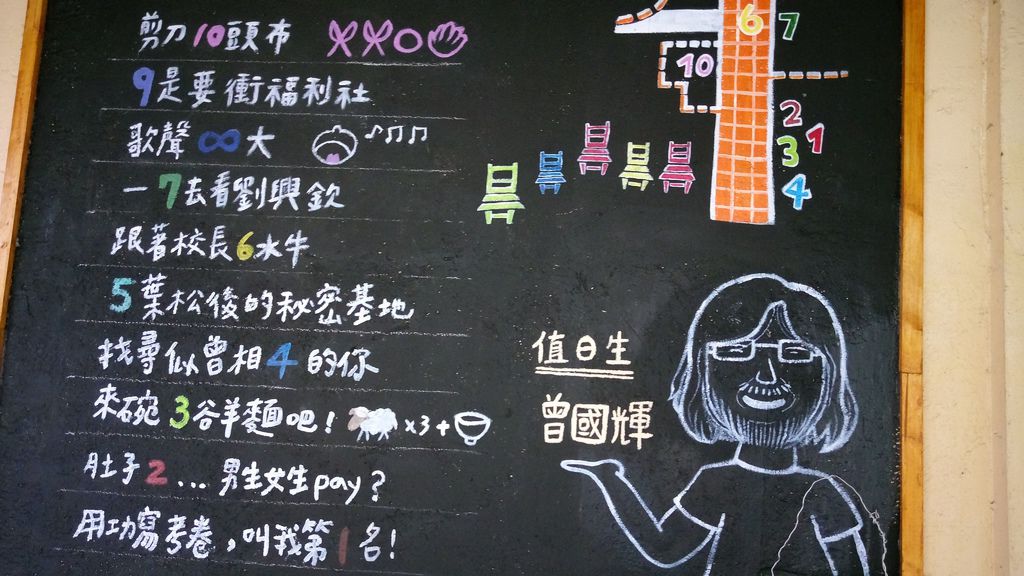 剪刀10頭布
9是要衝福利社
歌聲∞大
一7去看劉興欽
跟著校長6水牛
5葉松後的秘密基地
找尋似曾相4的你
來碗3谷羊麵吧! x3+
肚子2...男生女生pay?
用功寫考卷,叫我第1名!
6
7
10
2
1
3
4
值日生
曾國輝